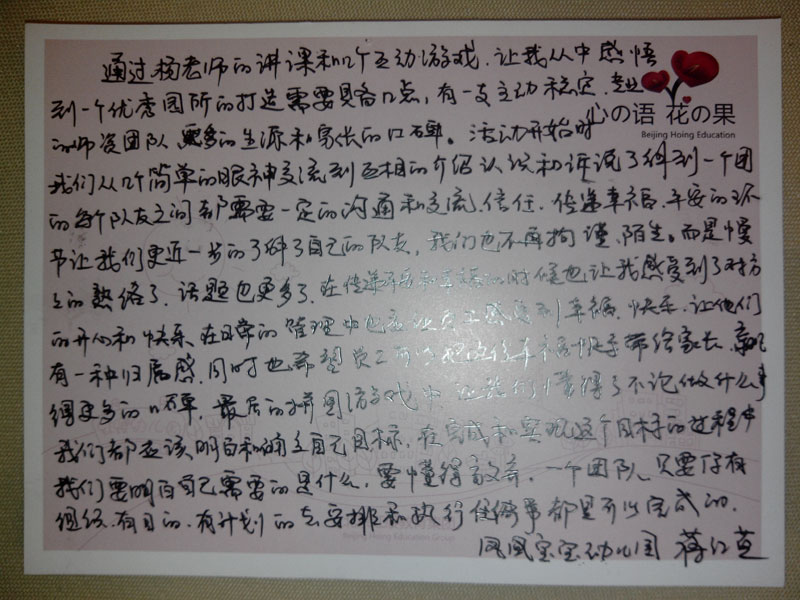 通过杨老师的讲课和几个互动游戏，让我从中感悟
到一个优秀园所的打造需要具备几点，有一支主动 稳定、专业
的师资团队 更多的生源和家长的口碑。活动开始时
心の语 花の果
Beijing Hoing Education
我们从几个简单的眼神交流到互相的介绍认识和诉说了解到一个团
的每个队友之间都需要一定的沟通和交流、信任、传递幸福、平安的环
节让我们更近一步的了解了自己的队友，我们也不再拘谨、陌生。而是慢
之的熟络了，话题也更多了，在传递平安和幸福的时候也让我感受到了对方
的开心和快乐 在日常的管理中也应让员工感受到幸福、快乐，让他们
有一种归属感，同时也希望员工 把这份幸福 带给家长，赢
得更多的口碑，最后的拼图游戏中 让我们懂得了不论做什么事
我们都应该明白和确立自己目标，在完成和实现这个目标的过程中
我们要明白自己需要的是什么，要懂得 一个团队、只要你有
组织、有目的、有计划的去安排和执行 任何事都是可以完成的．
Beijing Hoing Education Group
凤凰宝宝幼儿园 蒋红